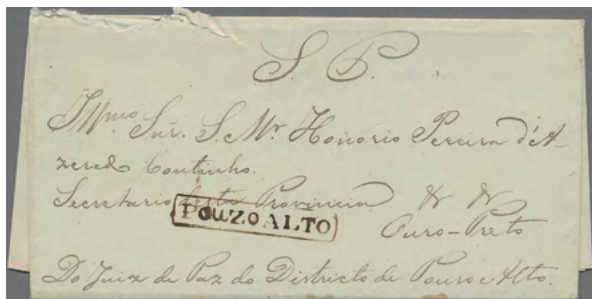 S. P.
Illmo. Snr. S. Mr. Honorio Pereira d'A-
zeredo Coutinho.
Secretario desta Provincia & &
POUZO ALTO
Ouro-Preto
Do Juiz de Paz do Districto de Pouso Alto.